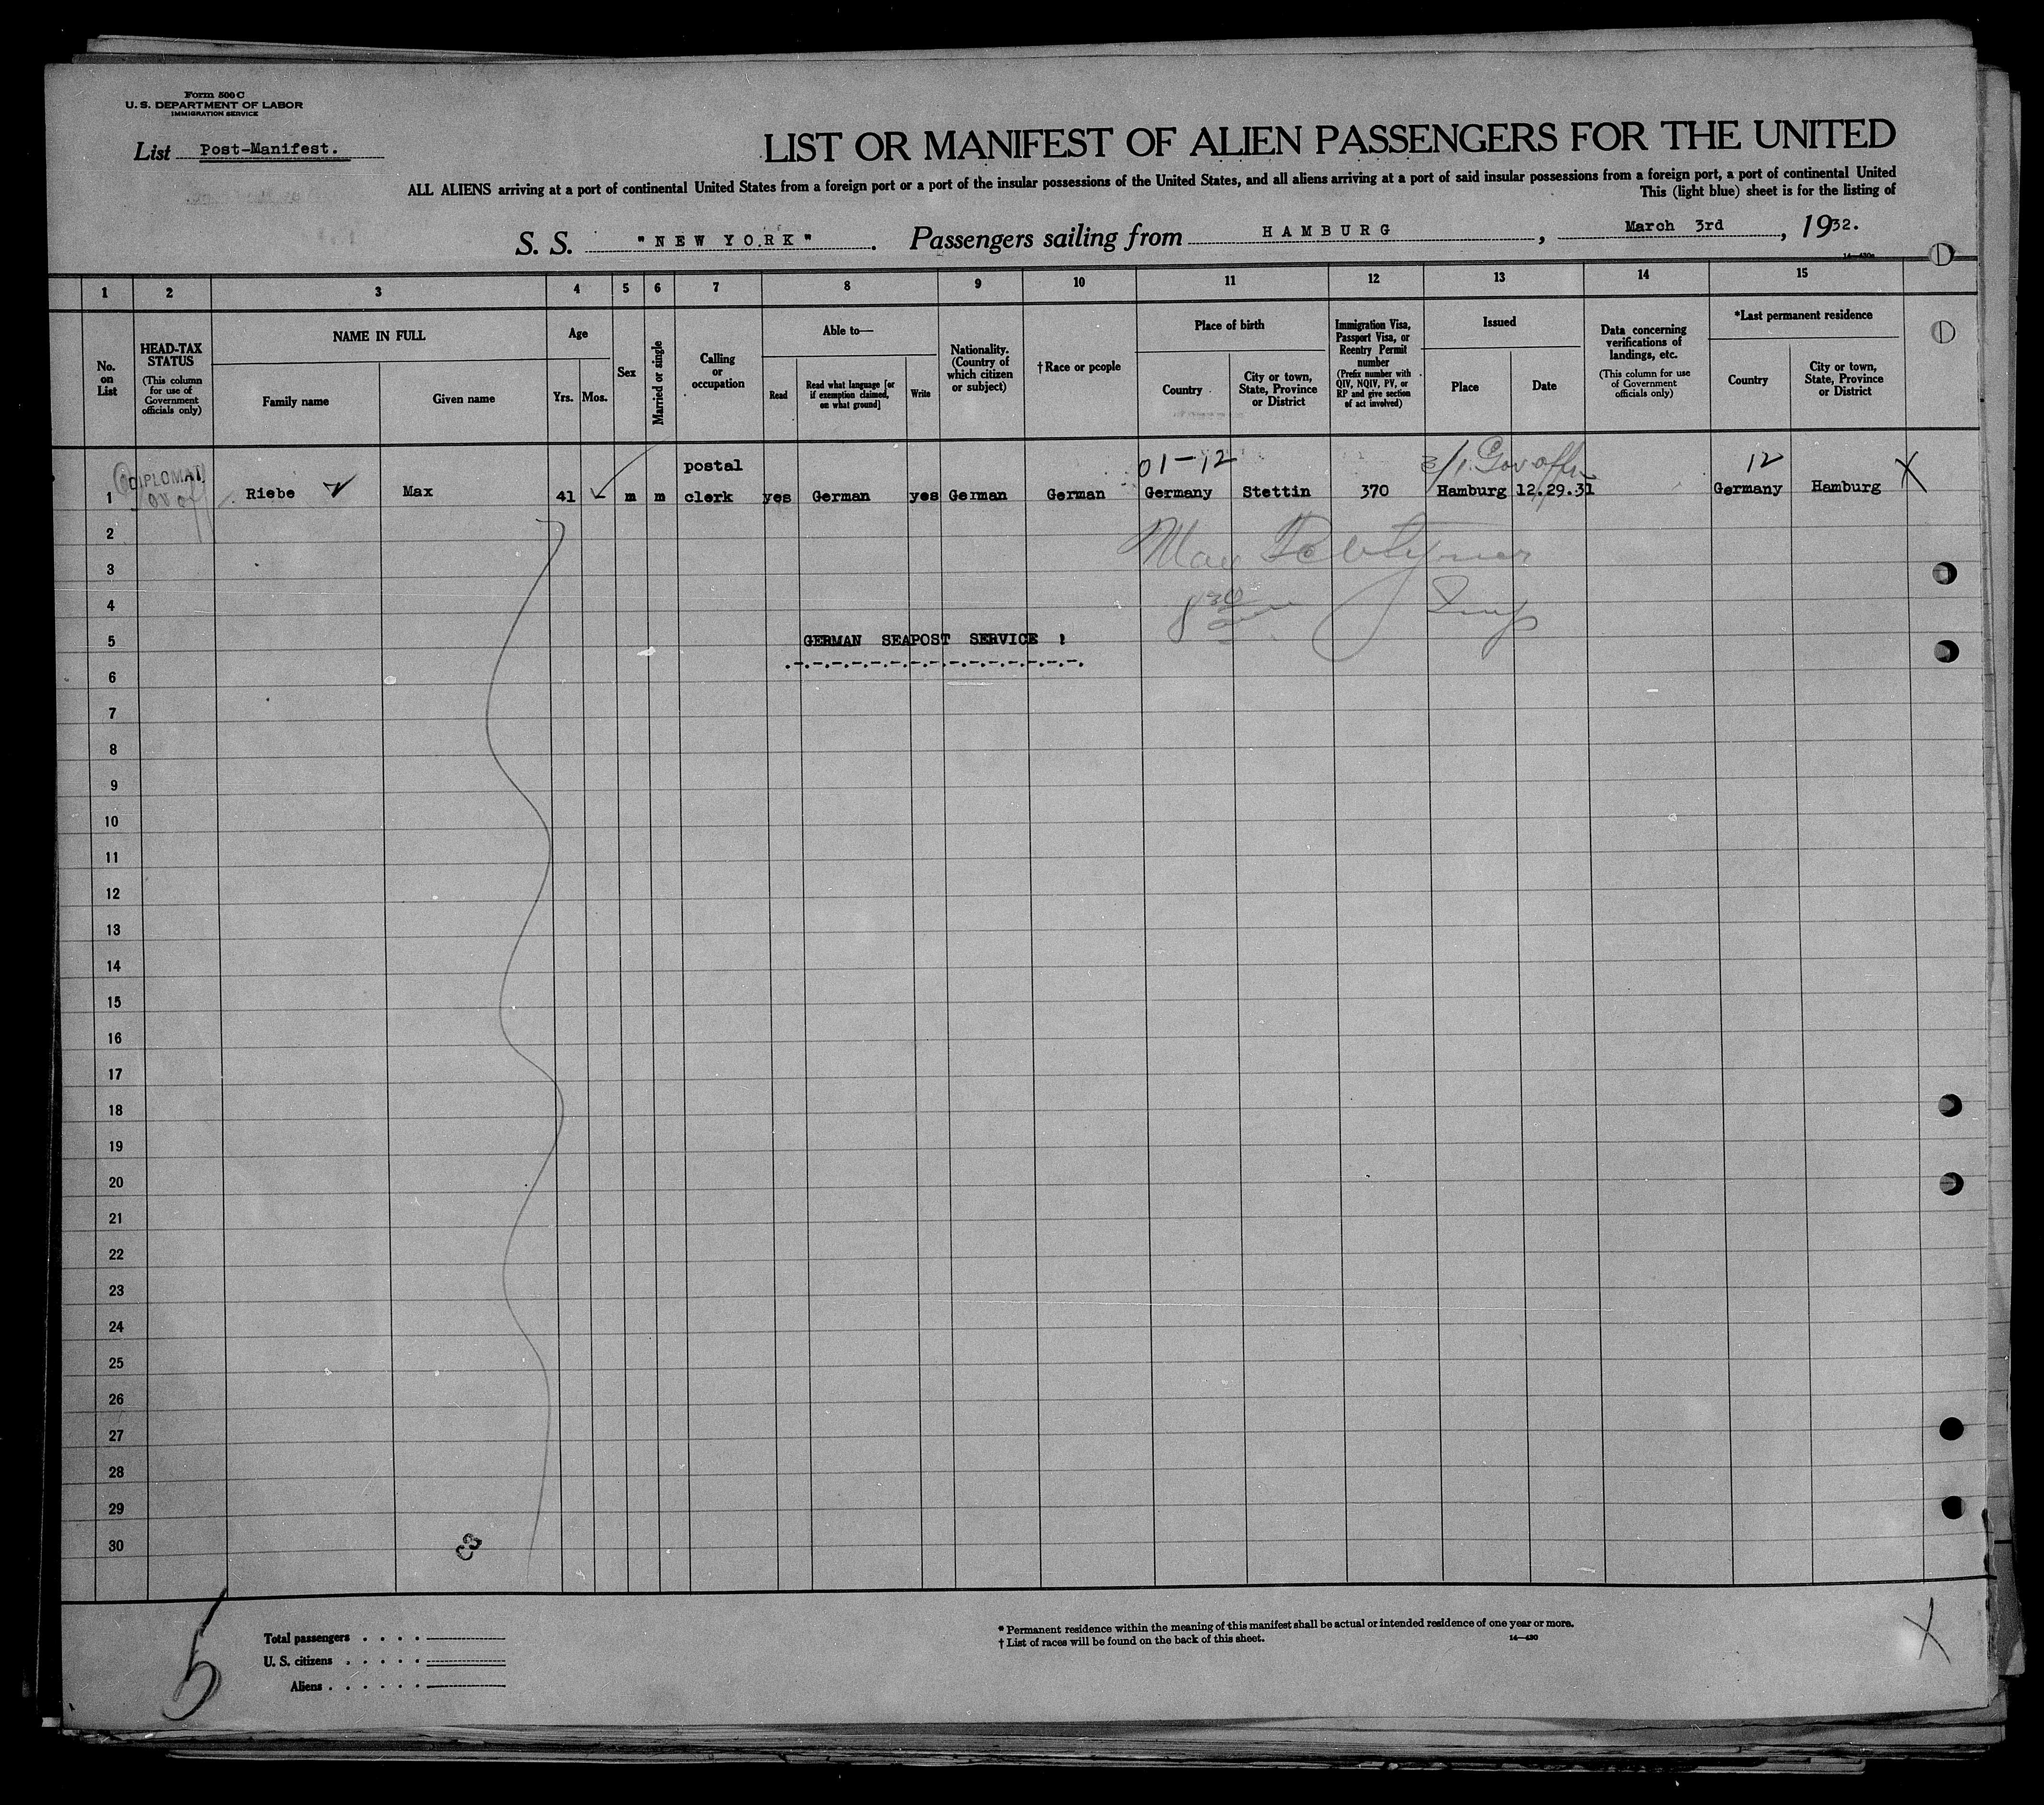 Form 500 C
U. S. DEPARTMENT OF LABOR
IMMIGRATION SERVICE
List Post-Manifest.
LIST OR MANIFEST OF ALIEN PASSENGERS FOR THE UNITED
ALL ALIENS arriving at a port of continental United States from a foreign port or a port of the insular possessions of the United States, and all aliens arriving at a port of said insular possessions from a foreign port, a port of continental United
This (light blue) sheet is for the listing of
S. S. "NEW YORK". Passengers sailing from HAMBURG, March 3rd, 1932.
1 2 3 4 5 6 7 8 9 10 11 12 13 14 15
No. on List
HEAD-TAX STATUS (This column for use of Government officials only)
NAME IN FULL
Family name Given name
Age
Yrs. Mos.
Sex
Married or single
Calling or occupation
Able to—
Read
Read what language [or if exemption claimed, on what ground]
Write
Nationality. (Country of which citizen or subject)
† Race or people
Place of birth
Country
City or town, State, Province or District
Immigration Visa, Passport Visa, or Reentry Permit number (Prefix number with QIV, NQIV, PV, or RP and give section of act involved)
Issued
Place Date
Data concerning verifications of landings, etc. (This column for use of Government officials only)
*Last permanent residence
Country
City or town, State, Province or District
DIPLOMAT postal 01-12 3/1 Gov offl 12
1 Riebe Max 41 m m clerk yes German yes German German Germany Stettin 370 Hamburg 12.29.31 Germany Hamburg X
2
3
4
5 GERMAN SEAPOST SERVICE !
6
7
8
9
10
11
12
13
14
15
16
17
18
19
20
21
22
23
24
25
26
27
28
29
30
5
Total passengers
U. S. citizens
Aliens
* Permanent residence within the meaning of this manifest shall be actual or intended residence of one year or more.
† List of races will be found on the back of this sheet.
14—430
X